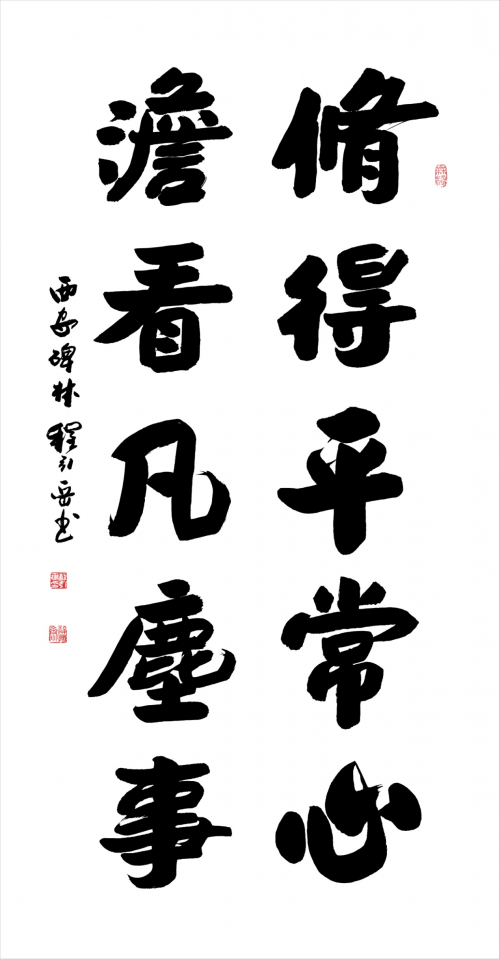 脩得平常心
澹看凡塵事
西安碑林程引岳书